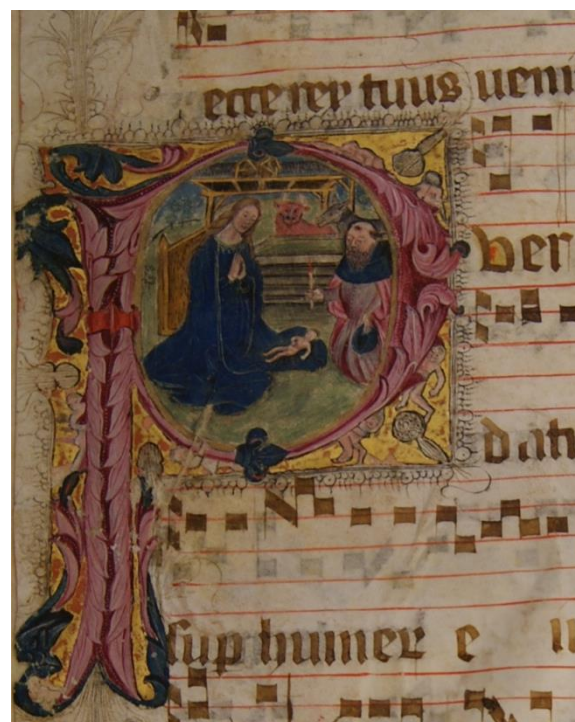 ecce rex tuus ueni
Puer
dat
sup humer e